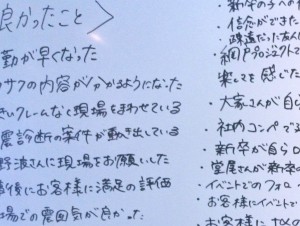 良かったこと>
勤が早くなった
の内容が分かるようになった
クレームなく現場をまわせている
震診断の案件が動き出している
野波さんに現場をお願いした
後にお客様に満足の評価
場での雰囲気が良かった
・新卒の子への
・信念ができた
・疎遠だった友人
・網戸プロジェクトで
楽しさを感じ
・大家さんが自
・社内コンペで
・新卒が自ら
・堂尾さんが新卒
・イベントでのフォロ
お客様にイベント
・お客様に